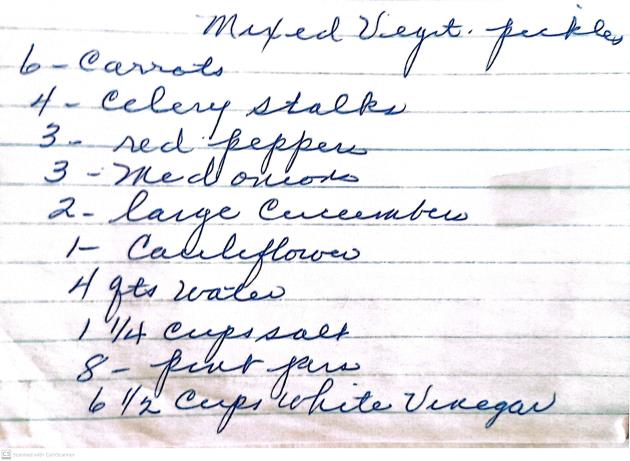 Mixed Veget. pickles
6 - Carrots
4 - Celery stalks
3 - red peppers
3 - Med onions
2 - large Cucumbers
1 - Cauliflower
4 qts water
1 1/4 cups salt
8 - pint jars
6 1/2 Cups White Vinegar
CS Scanned with CamScanner